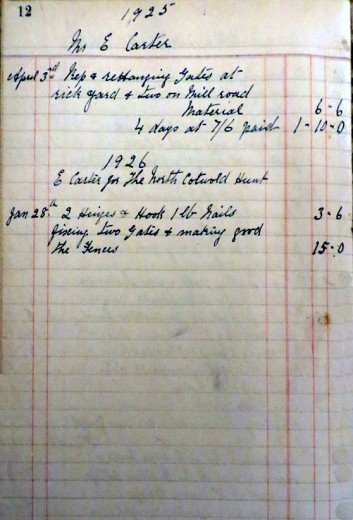 12
1925
Mr E Carter
April 3rd Rep & rehanging Gates at
rick yard & two on Mill road
Material 6-6
4 days at 7/6 paid 1-10-0
1926
E Carter for The North Cotwold Hunt
Jan 28th 2 Hinges & Hook 1 lb Nails 3-6
fixing two Gates & making good
the Fences 15-0